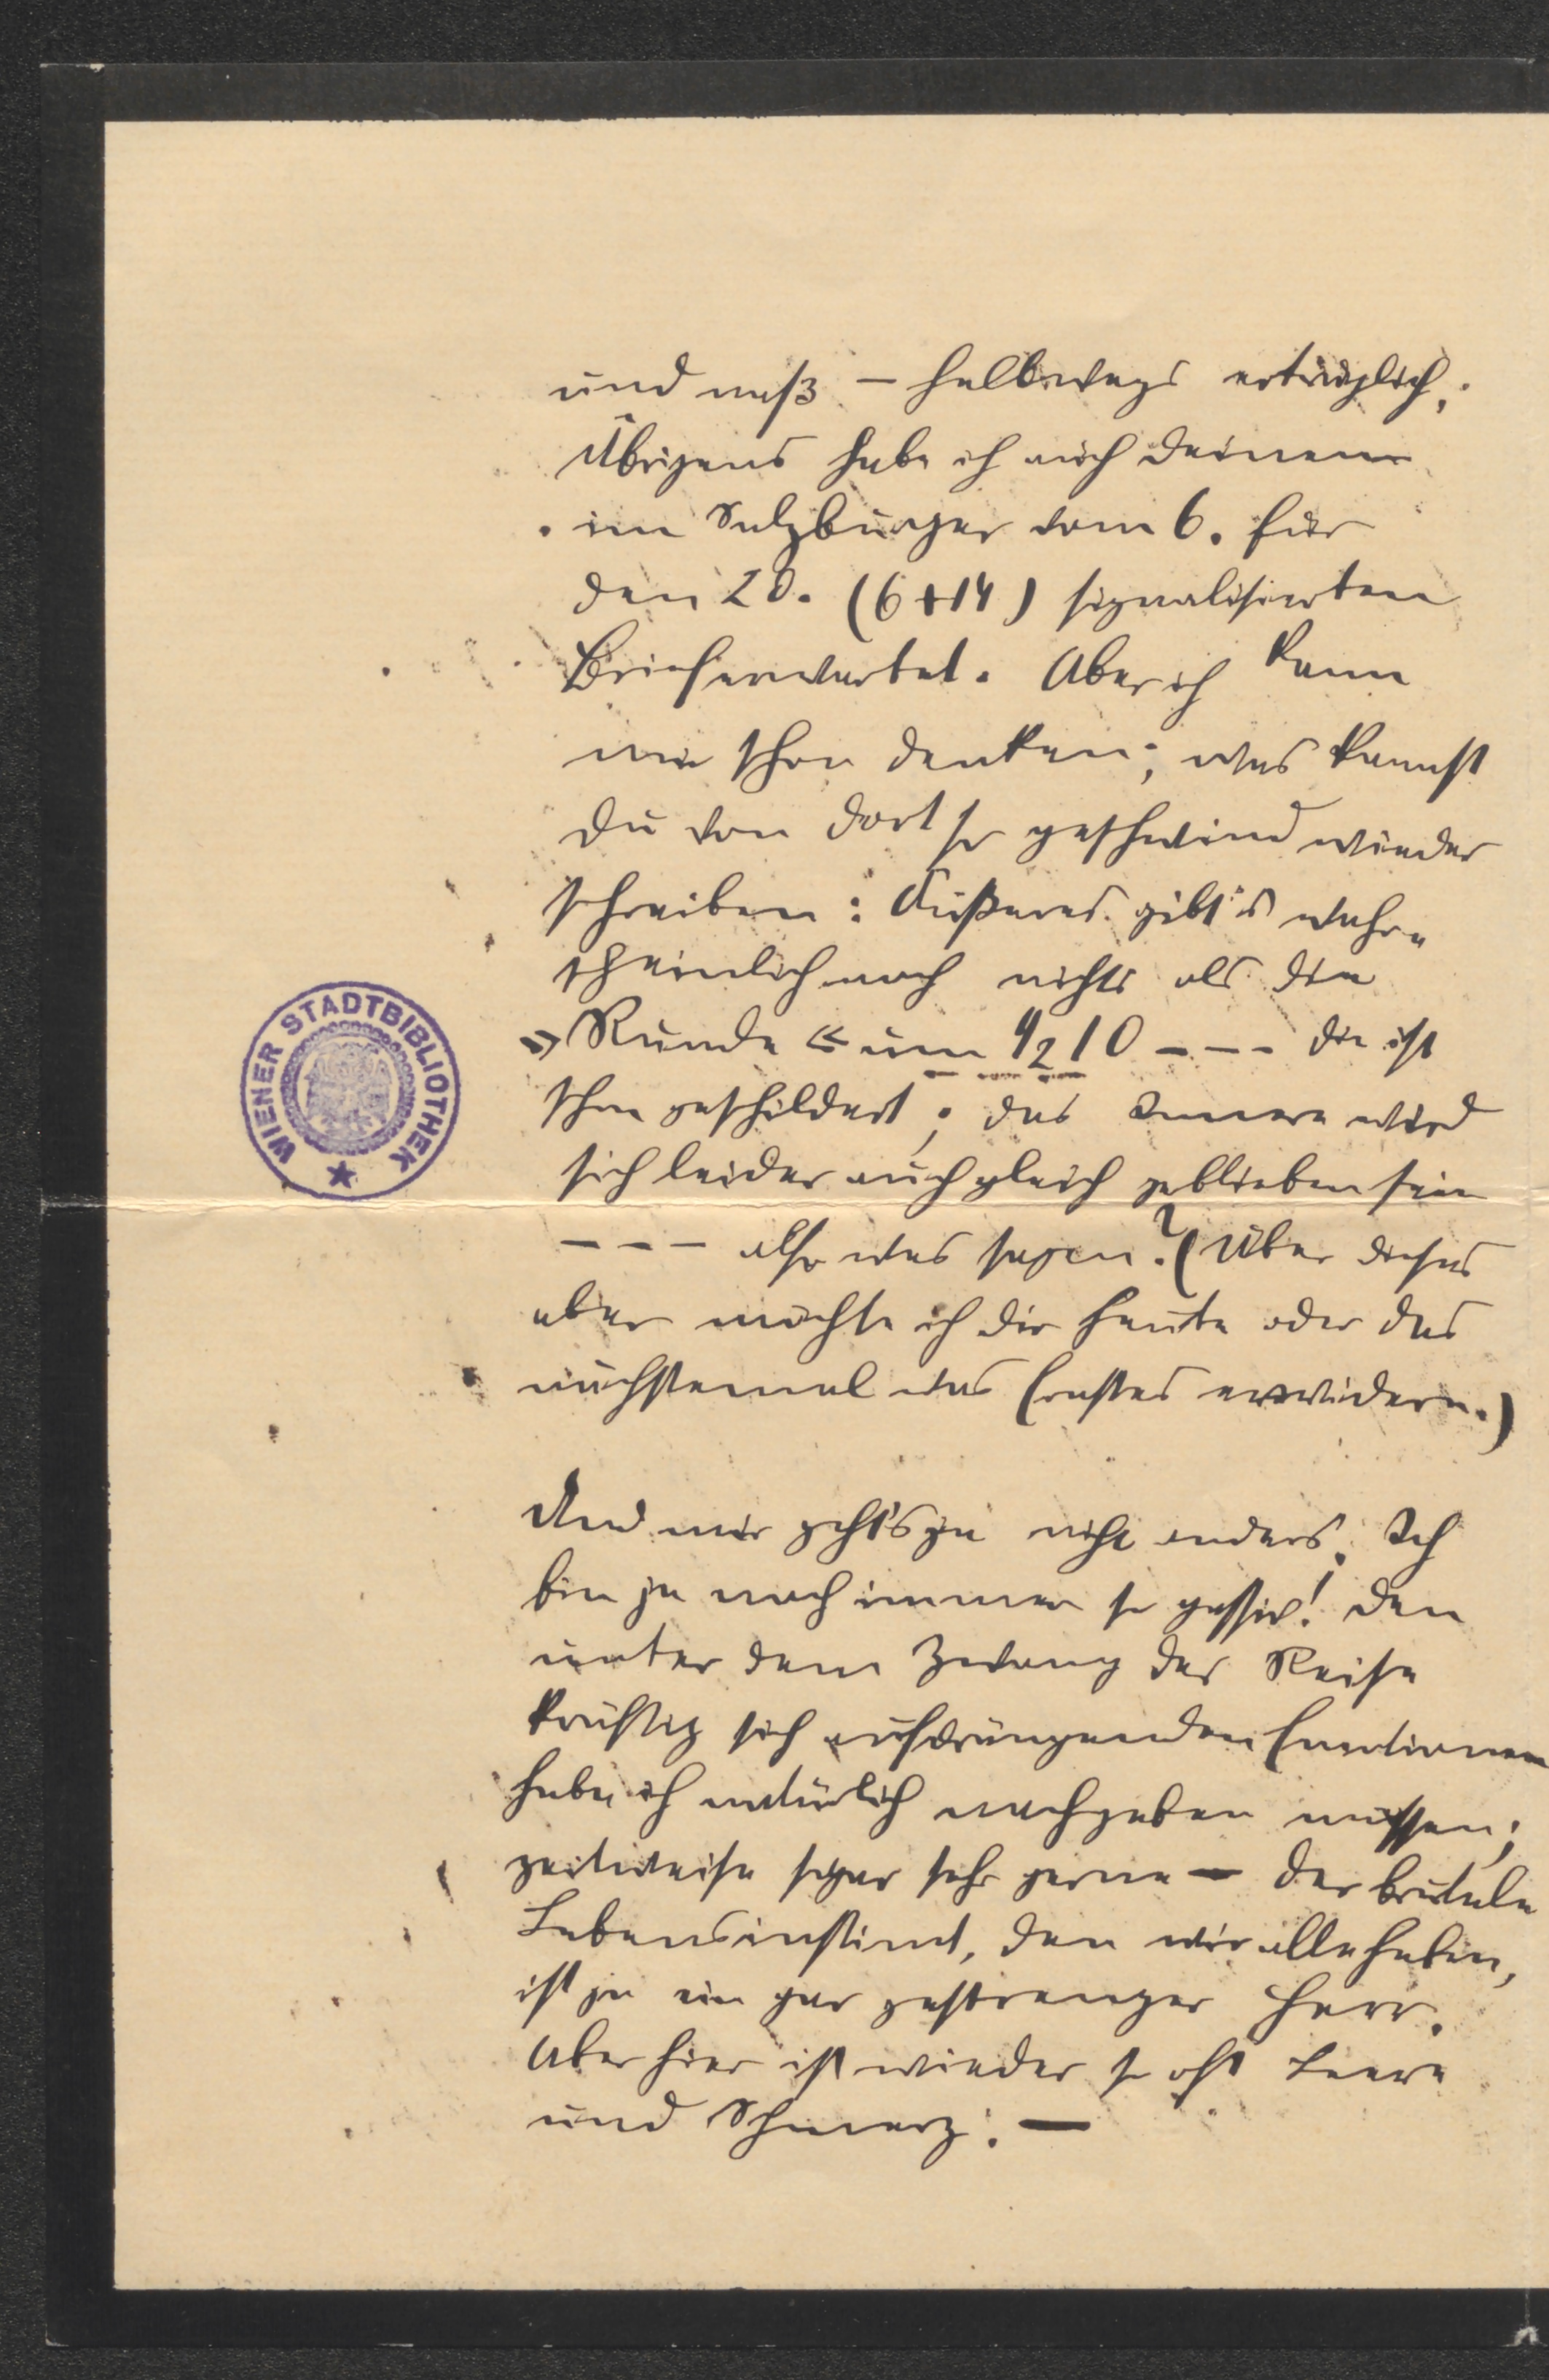 und naß – halbwegs erträglich.
Übrigens habe ich auch Deinen
im Salzburger vom 6. für
den 20. (6+14) signalisierten
Brief erwartet. Aber ich kann
mir schon denken; was kannst
Du von dort so geschwind wieder
schreiben: Äußeres gibt's wahr-
scheinlich noch nichts als die
»Runde« um ½10 --- die ist
schon geschildert; das Innere wird
sich leider auch gleich geblieben sein
--- also was sagen? (Über dieses
aber möchte ich Dir heute oder das
nächstemal was Ernstes erwidern.)
Und mir geht's ja nicht anders. Ich
bin ja noch immer so passiv! Den
unter dem Zwang der Reise
kräftig sich aufdrängenden Emotionen
habe ich natürlich nachgeben müssen;
zeitweise sogar sehr gerne – der brutale
Lebensinstinct, den wir alle haben,
ist ja ein gar gestrenger Herr.
Aber hier ist wieder so oft Leere
und Schmerz. –
WIENER STADTBIBLIOTHEK